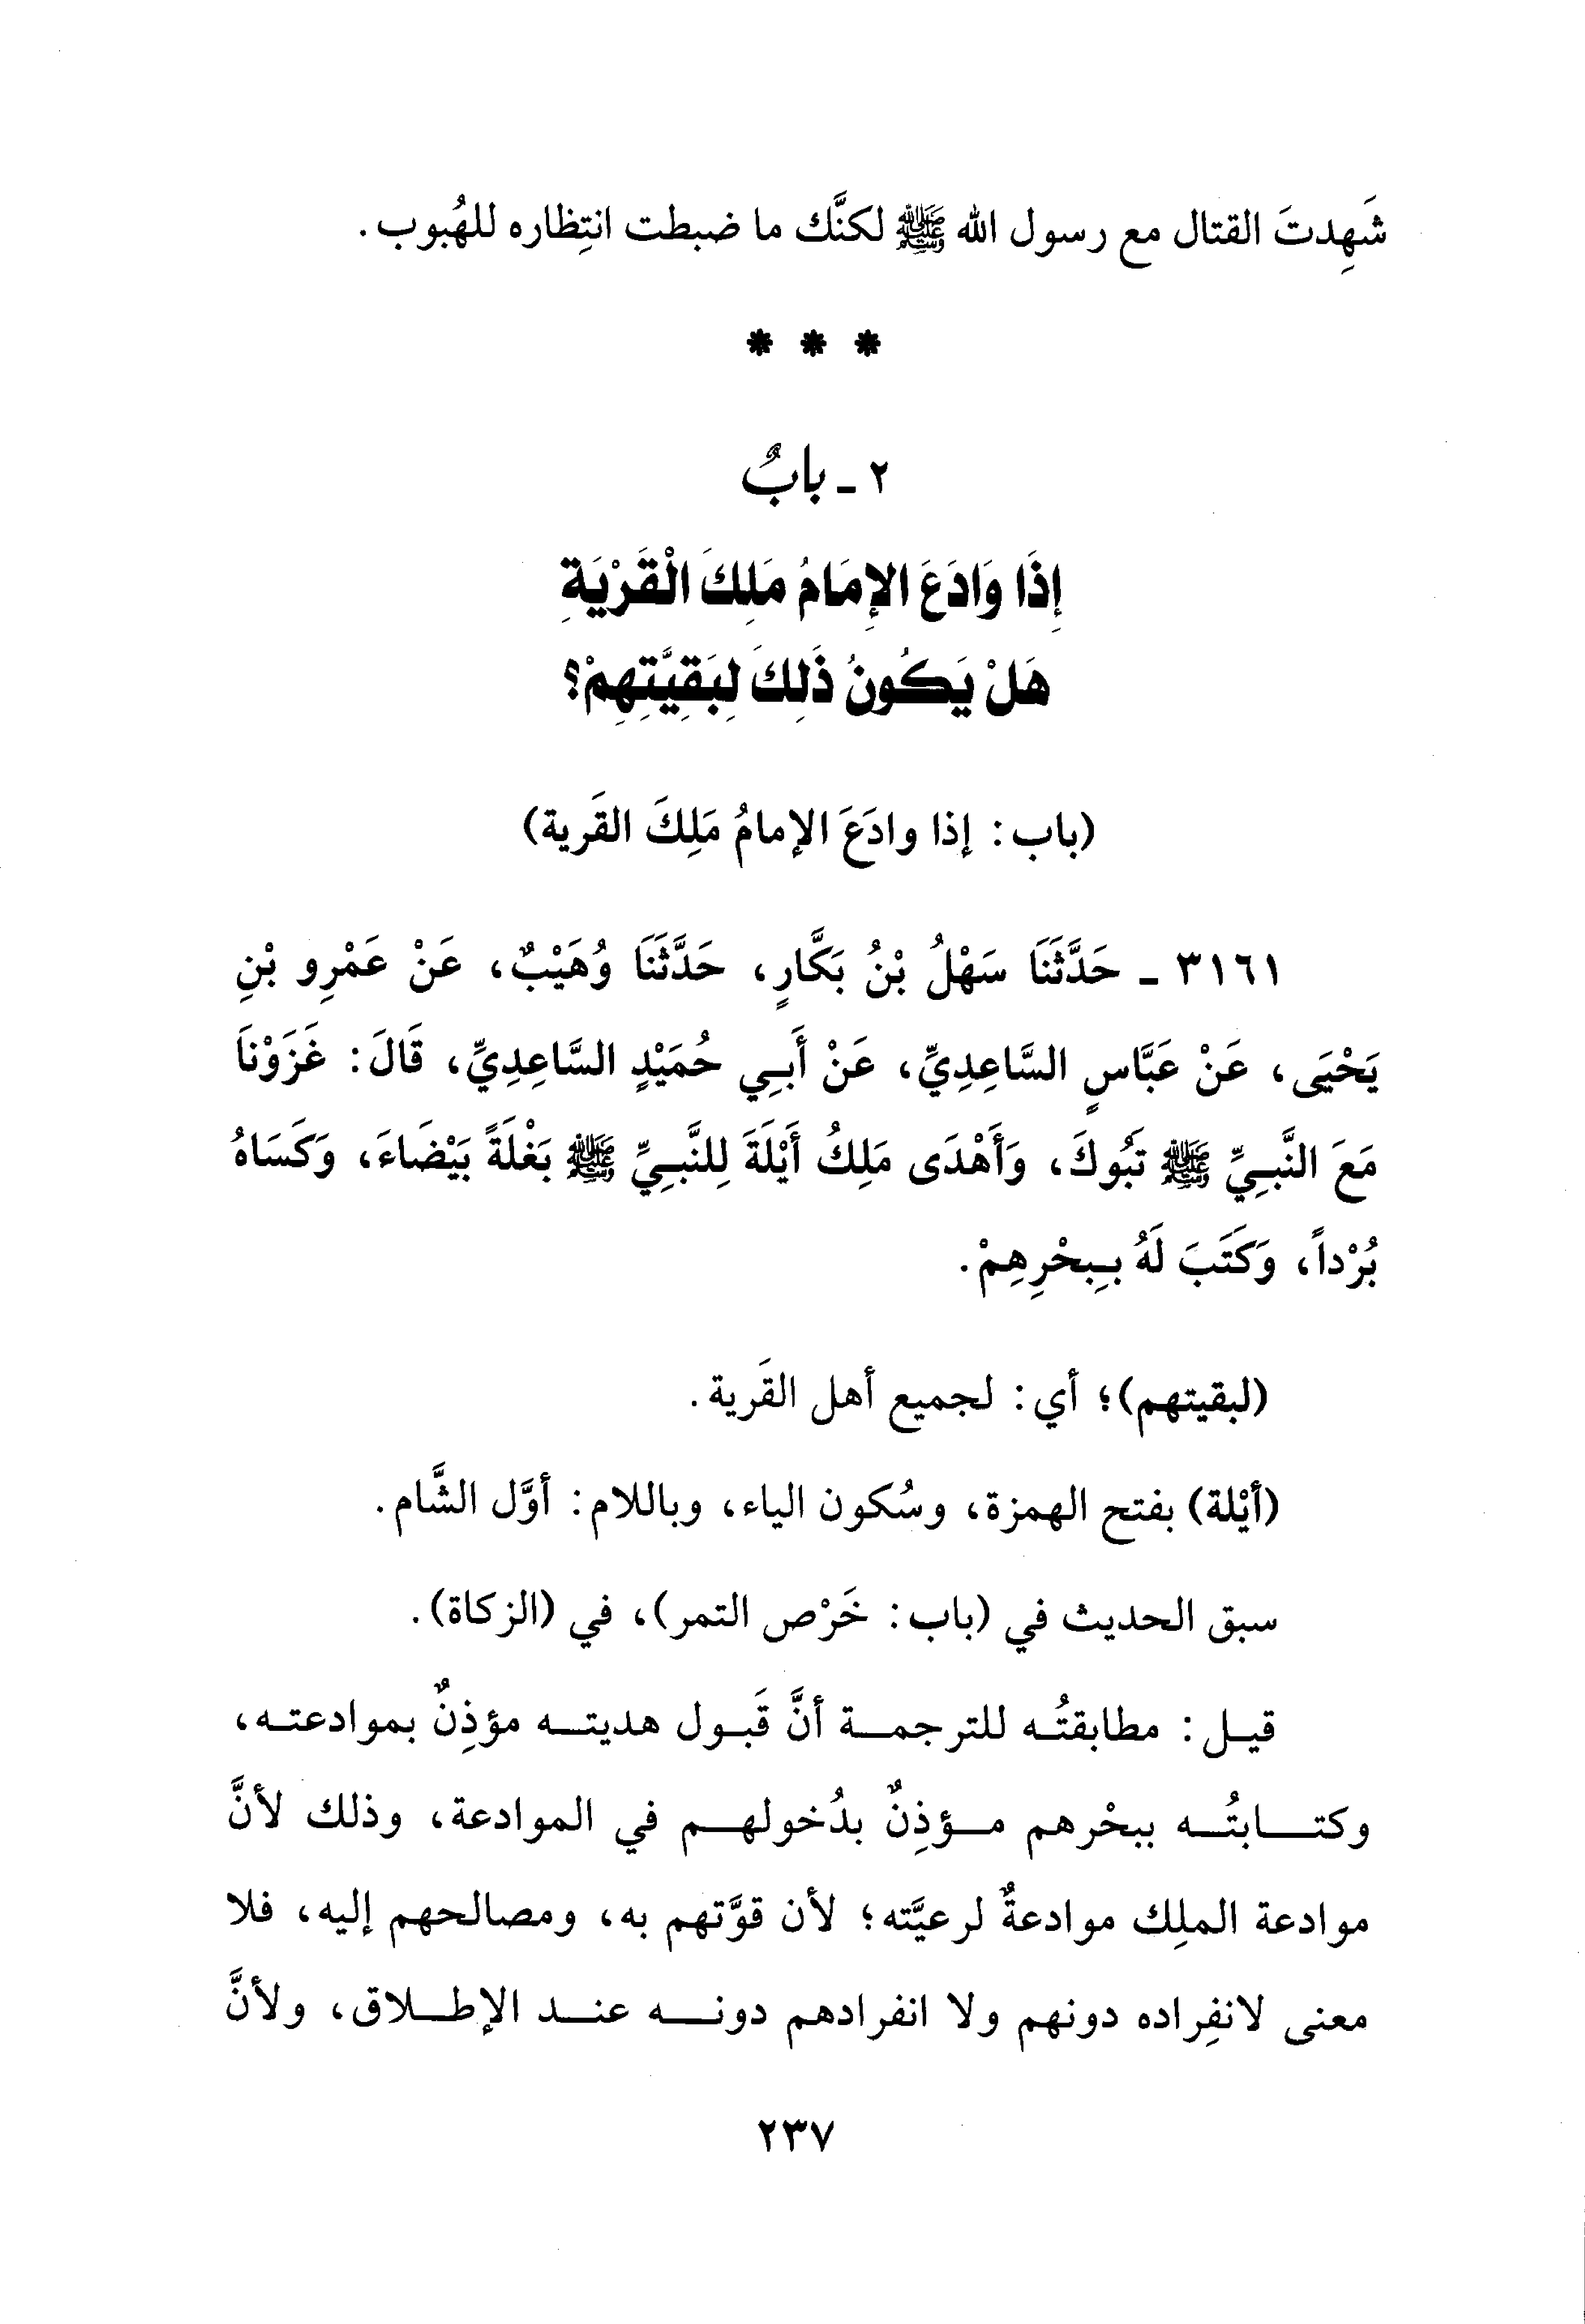 شَهِدتَ القتال مع رسول الله ﷺ لكنَّك ما ضبطت انتِظاره للهُبوب.
* * *
٢ ـ بابٌ
إِذَا وَادَعَ الإِمَامُ مَلِكَ الْقَرْيَةِ
هَلْ يَكُونُ ذَلِكَ لِبَقِيَّتِهِمْ؟
(باب: إذا وادَعَ الإمامُ مَلِكَ القَرية)
٣١٦١ ـ حَدَّثَنَا سَهْلُ بْنُ بَكَّارٍ، حَدَّثَنَا وُهَيْبٌ، عَنْ عَمْرِو بْنِ
يَحْيَى، عَنْ عَبَّاسٍ السَّاعِدِيِّ، عَنْ أَبِي حُمَيْدٍ السَّاعِدِيِّ، قَالَ: غَزَوْنَا
مَعَ النَّبِيِّ ﷺ تَبُوكَ، وَأَهْدَى مَلِكُ أَيْلَةَ لِلنَّبِيِّ ﷺ بَغْلَةً بَيْضَاءَ، وَكَسَاهُ
بُرْداً، وَكَتَبَ لَهُ بِبِحْرِهِمْ.
(لبقيتهم)؛ أي: لجميع أهل القَرية.
(أَيْلة) بفتح الهمزة، وسُكون الياء، وباللام: أوَّل الشَّام.
سبق الحديث في (باب: خَرْص التمر)، في (الزكاة).
قيل: مطابقتُه للترجمة أنَّ قَبول هديته مؤذِنٌ بموادعته،
وكتابتُه ببحْرهم مؤذِنٌ بدُخولهم في الموادعة، وذلك لأنَّ
موادعة الملِك موادعةٌ لرعيَّته؛ لأن قوَّتهم به، ومصالحهم إليه، فلا
معنى لانفِراده دونهم ولا انفرادهم دونه عند الإطلاق، ولأنَّ
٢٣٧